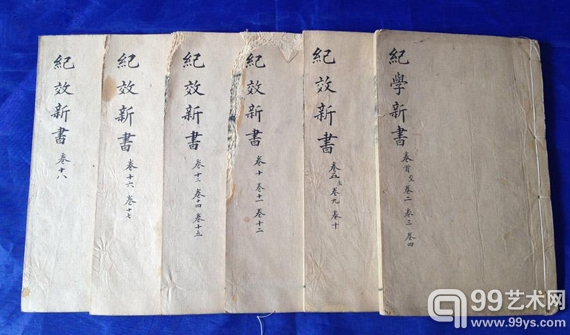 紀學新書
卷首至卷二 卷三 卷四
紀效新書
卷五至卷九 卷十
紀效新書
卷十 卷十一 卷十二
紀效新書
卷十三 卷十四 卷十五
紀效新書
卷十六 卷十七
紀效新書
卷十八
99艺术网
www.99ys.com